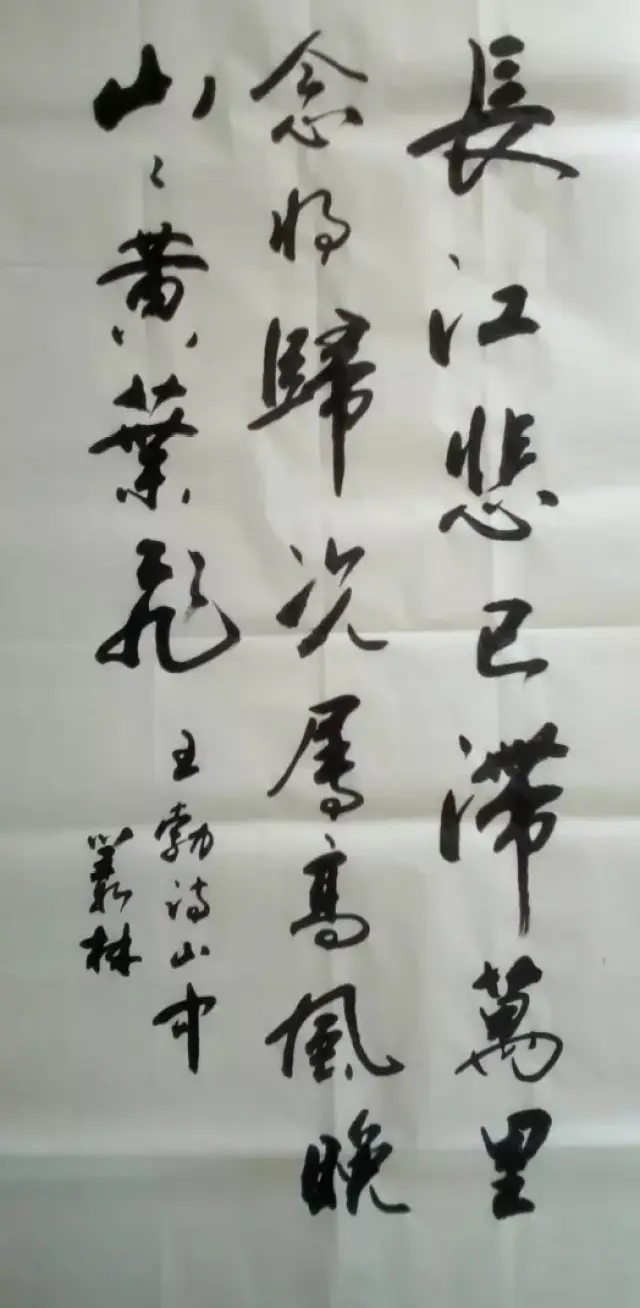 長江悲已滯萬里
念將歸況屬高風晚
山〻黄葉飛
王勃詩山中
叢林